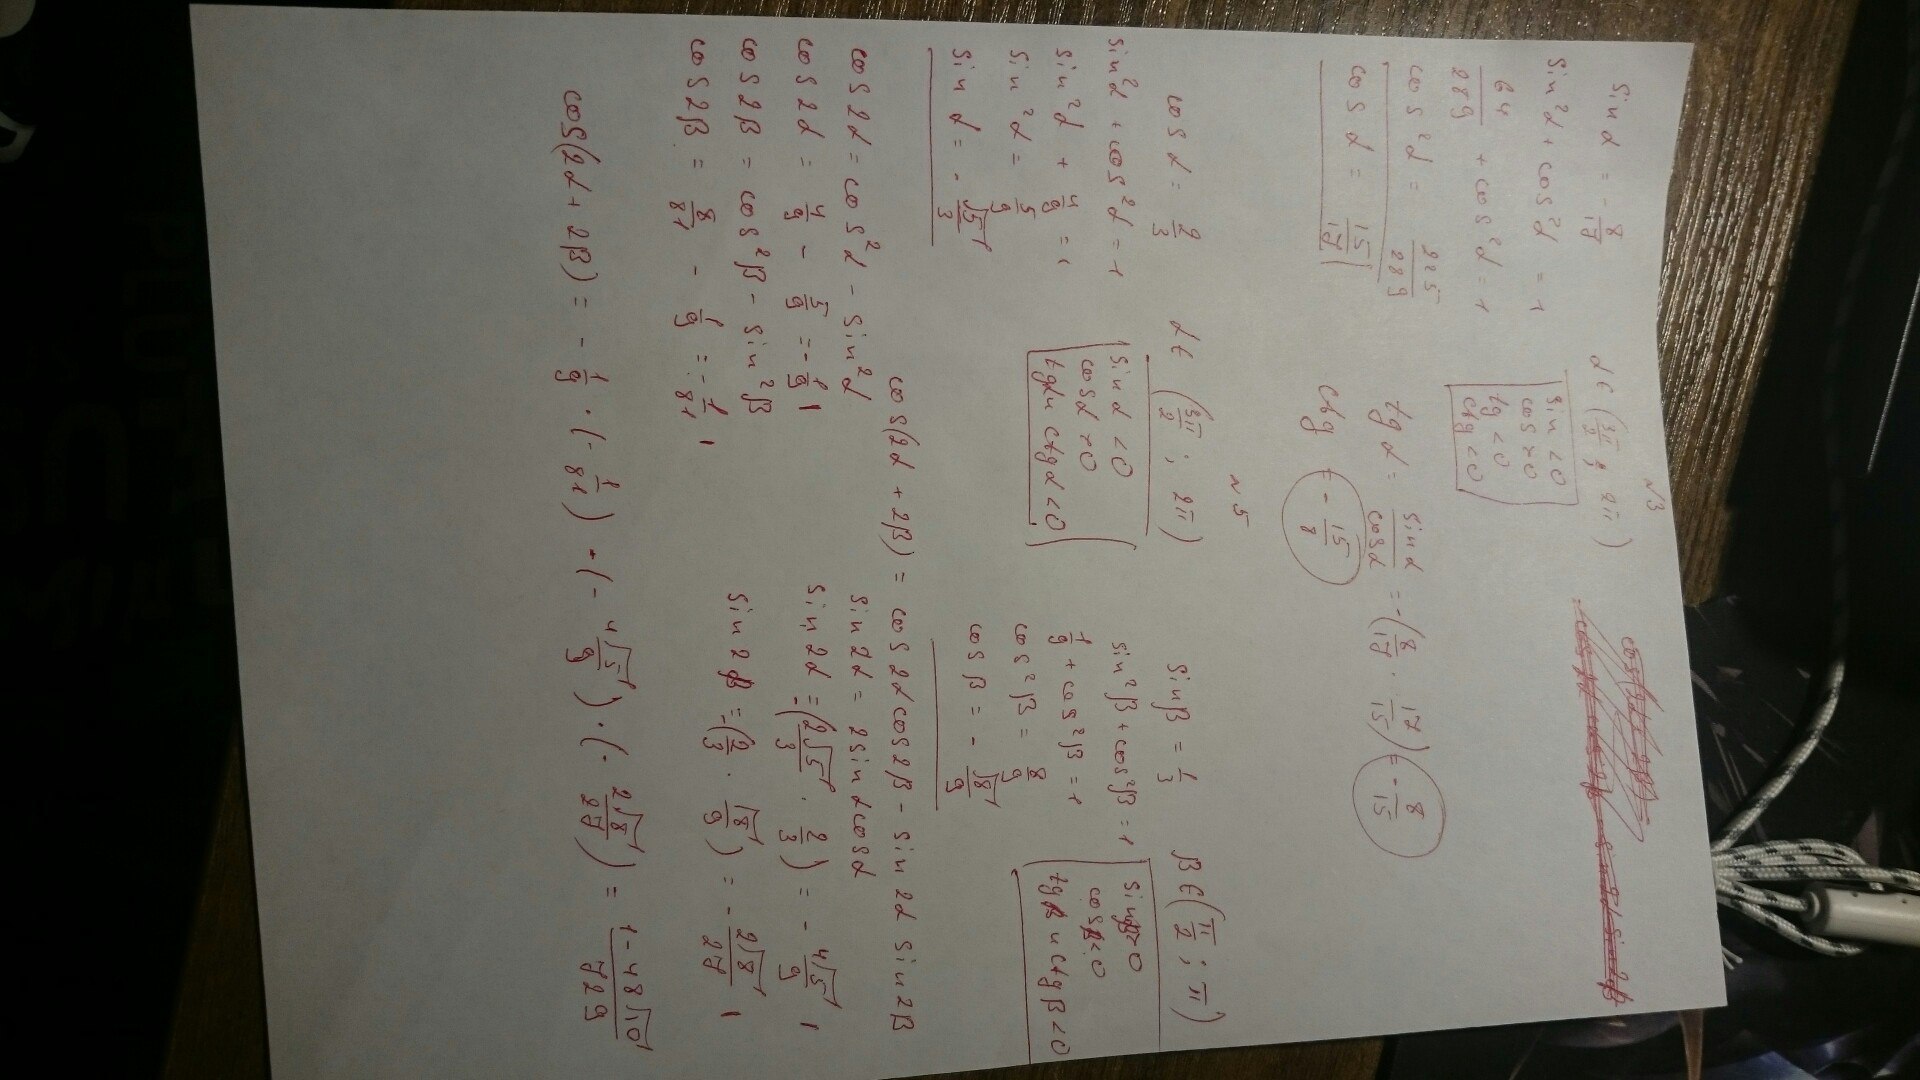 №3
sin α = - 8/17
α ∈ (3π/2 ; 2π)
sin²α + cos²α = 1
64/289 + cos²α = 1
cos²α = 225/289
cos α = 15/17
sin < 0
cos > 0
tg < 0
ctg < 0
tg α = sin α/cos α = -(8/17 · 17/15) = - 8/15
ctg = - 15/8
№5
cos α = 2/3
α ∈ (3π/2 ; 2π)
sin β = 1/3
β ∈ (π/2 ; π)
sin²α + cos²α = 1
sin²α + 4/9 = 1
sin²α = 5/9
sin α = - √5/3
sin α < 0
cos α > 0
tg α и ctg α < 0
sin²β + cos²β = 1
1/9 + cos²β = 1
cos²β = 8/9
cos β = - √8/9
sin β > 0
cos β < 0
tg β и ctg β < 0
cos(2α + 2β) = cos 2α cos 2β - sin 2α sin 2β
cos 2α = cos²α - sin²α
cos 2α = 4/9 - 5/9 = - 1/9
cos 2β = cos²β - sin²β
cos 2β = 8/81 - 1/9 = - 1/81
sin 2α = 2 sin α cos α
sin 2α = -(2√5/3 · 2/3) = - 4√5/9
sin 2β = -(2/3 · √8/9) = - 2√8/27
cos(2α + 2β) = - 1/9 · (- 1/81) - (- 4√5/9) · (- 2√8/27) = 1 - 48√10/729